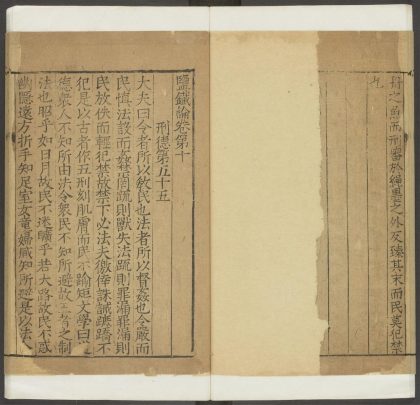 之曲而刑審於繩墨之外及臻其末而民莫犯禁
也
鹽鐵論卷第十
刑德第五十五
大夫曰令者所以敎民也法者所以督姦也令嚴而
民慎法設而姦禁罔疏則獸失法疏則罪漏罪漏則
民放佚而輕犯禁故禁不必法夫徼倖誅誡蹠蹻不
犯是以古者作五刑刻肌膚而民不踰矩文學曰道
德衆人不知所由法令衆民不知所避故王者之制
法也昭乎如日月故民不迷曠乎若大路故民不惑
幽隱遠方折乎知足室女童婦咸知所避是以法令